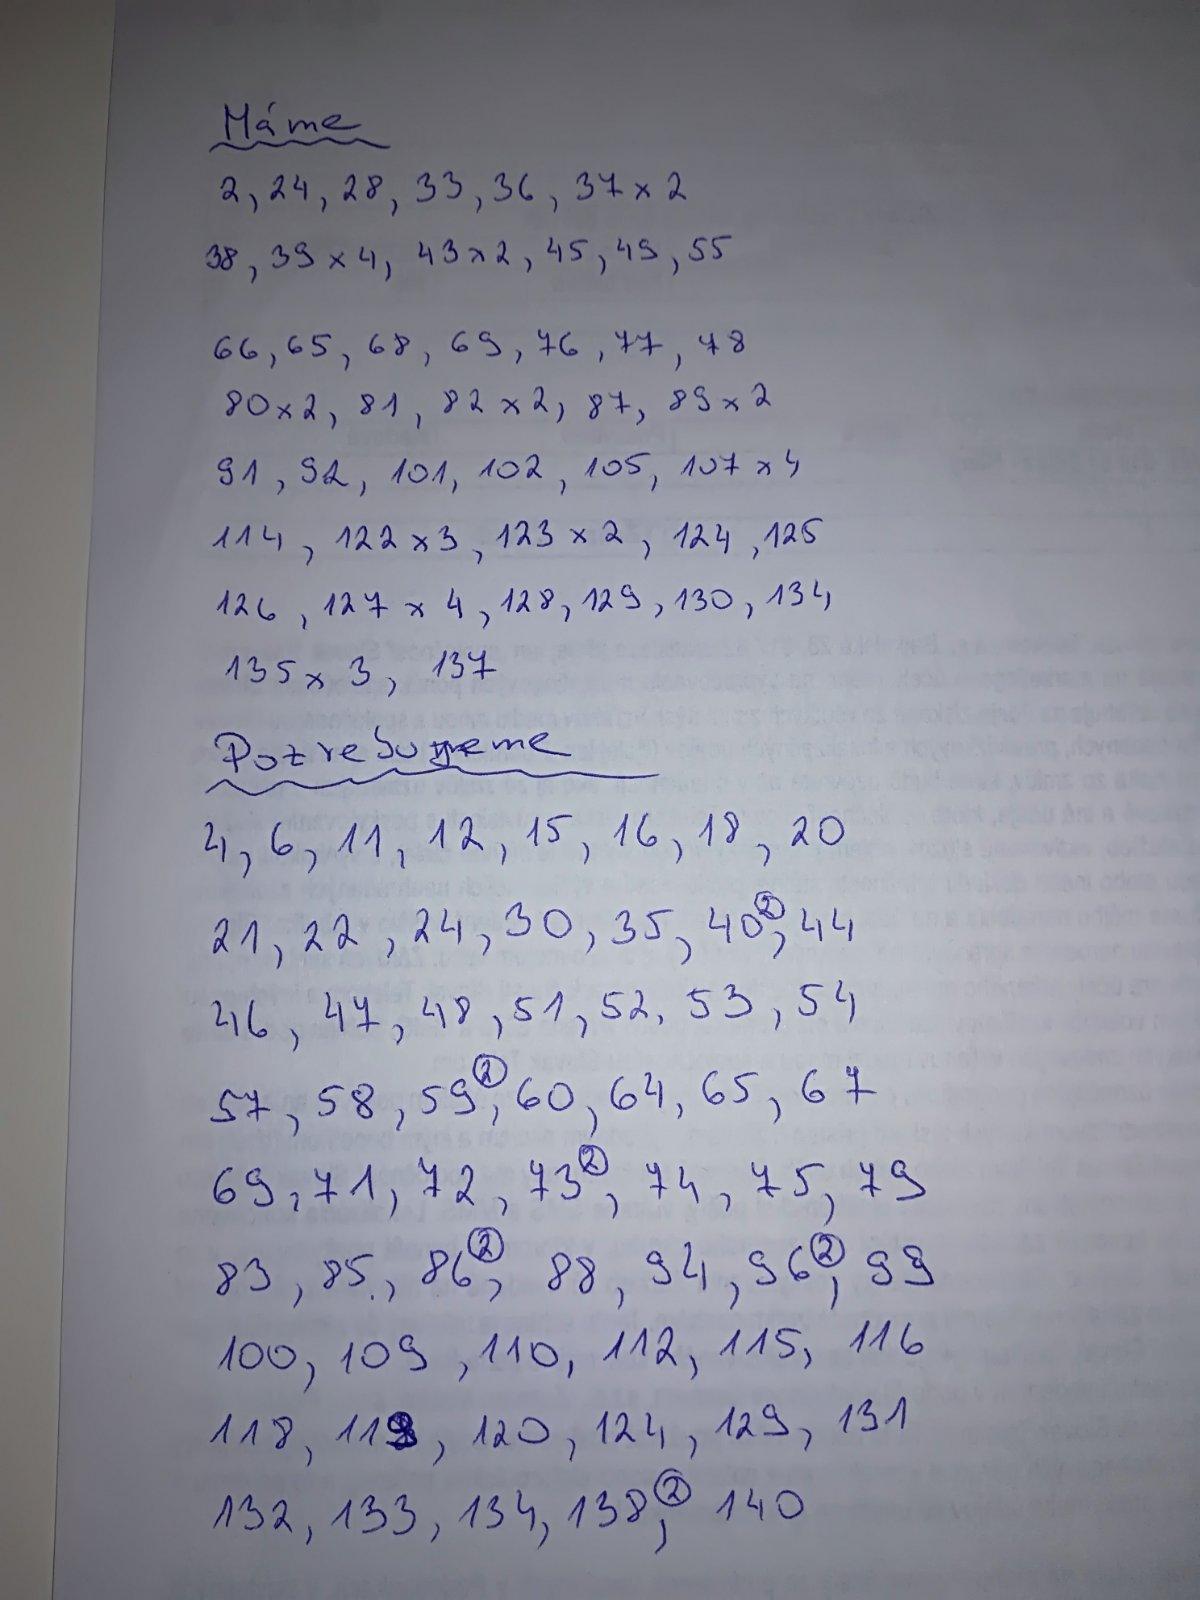 Máme
2, 24, 28, 33, 36, 37 x 2
38, 39 x 4, 43 x 2, 45, 49, 55
66, 65, 68, 69, 76, 77, 78
80 x 2, 81, 82 x 2, 87, 89 x 2
91, 92, 101, 102, 105, 107 x 4
114, 122 x 3, 123 x 2, 124, 125
126, 127 x 4, 128, 129, 130, 134
135 x 3, 137
Potrebujeme
4, 6, 11, 12, 15, 16, 18, 20
21, 22, 24, 30, 35, 40②, 44
46, 47, 48, 51, 52, 53, 54
57, 58, 59②, 60, 64, 65, 67
69, 71, 72, 73②, 74, 75, 79
83, 85, 86②, 88, 94, 96②, 99
100, 109, 110, 112, 115, 116
118, 119, 120, 124, 129, 131
132, 133, 134, 138②, 140